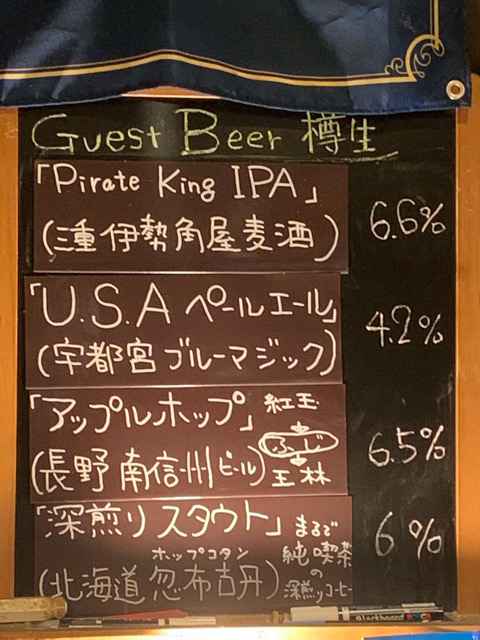 Guest Beer 樽生
「Pirate King IPA」
(三重 伊勢角屋麦酒)
6.6%
「U.S.A ペールエール」
(宇都宮 ブルーマジック)
4.2%
「アップルホップ」
(長野 南信州ビール)
紅玉
ふじ
王林
6.5%
「深煎り スタウト」
(北海道 忽布古丹)
ホップコタン
まるで
純喫茶
の
深煎りコーヒー
6%
Blackboard